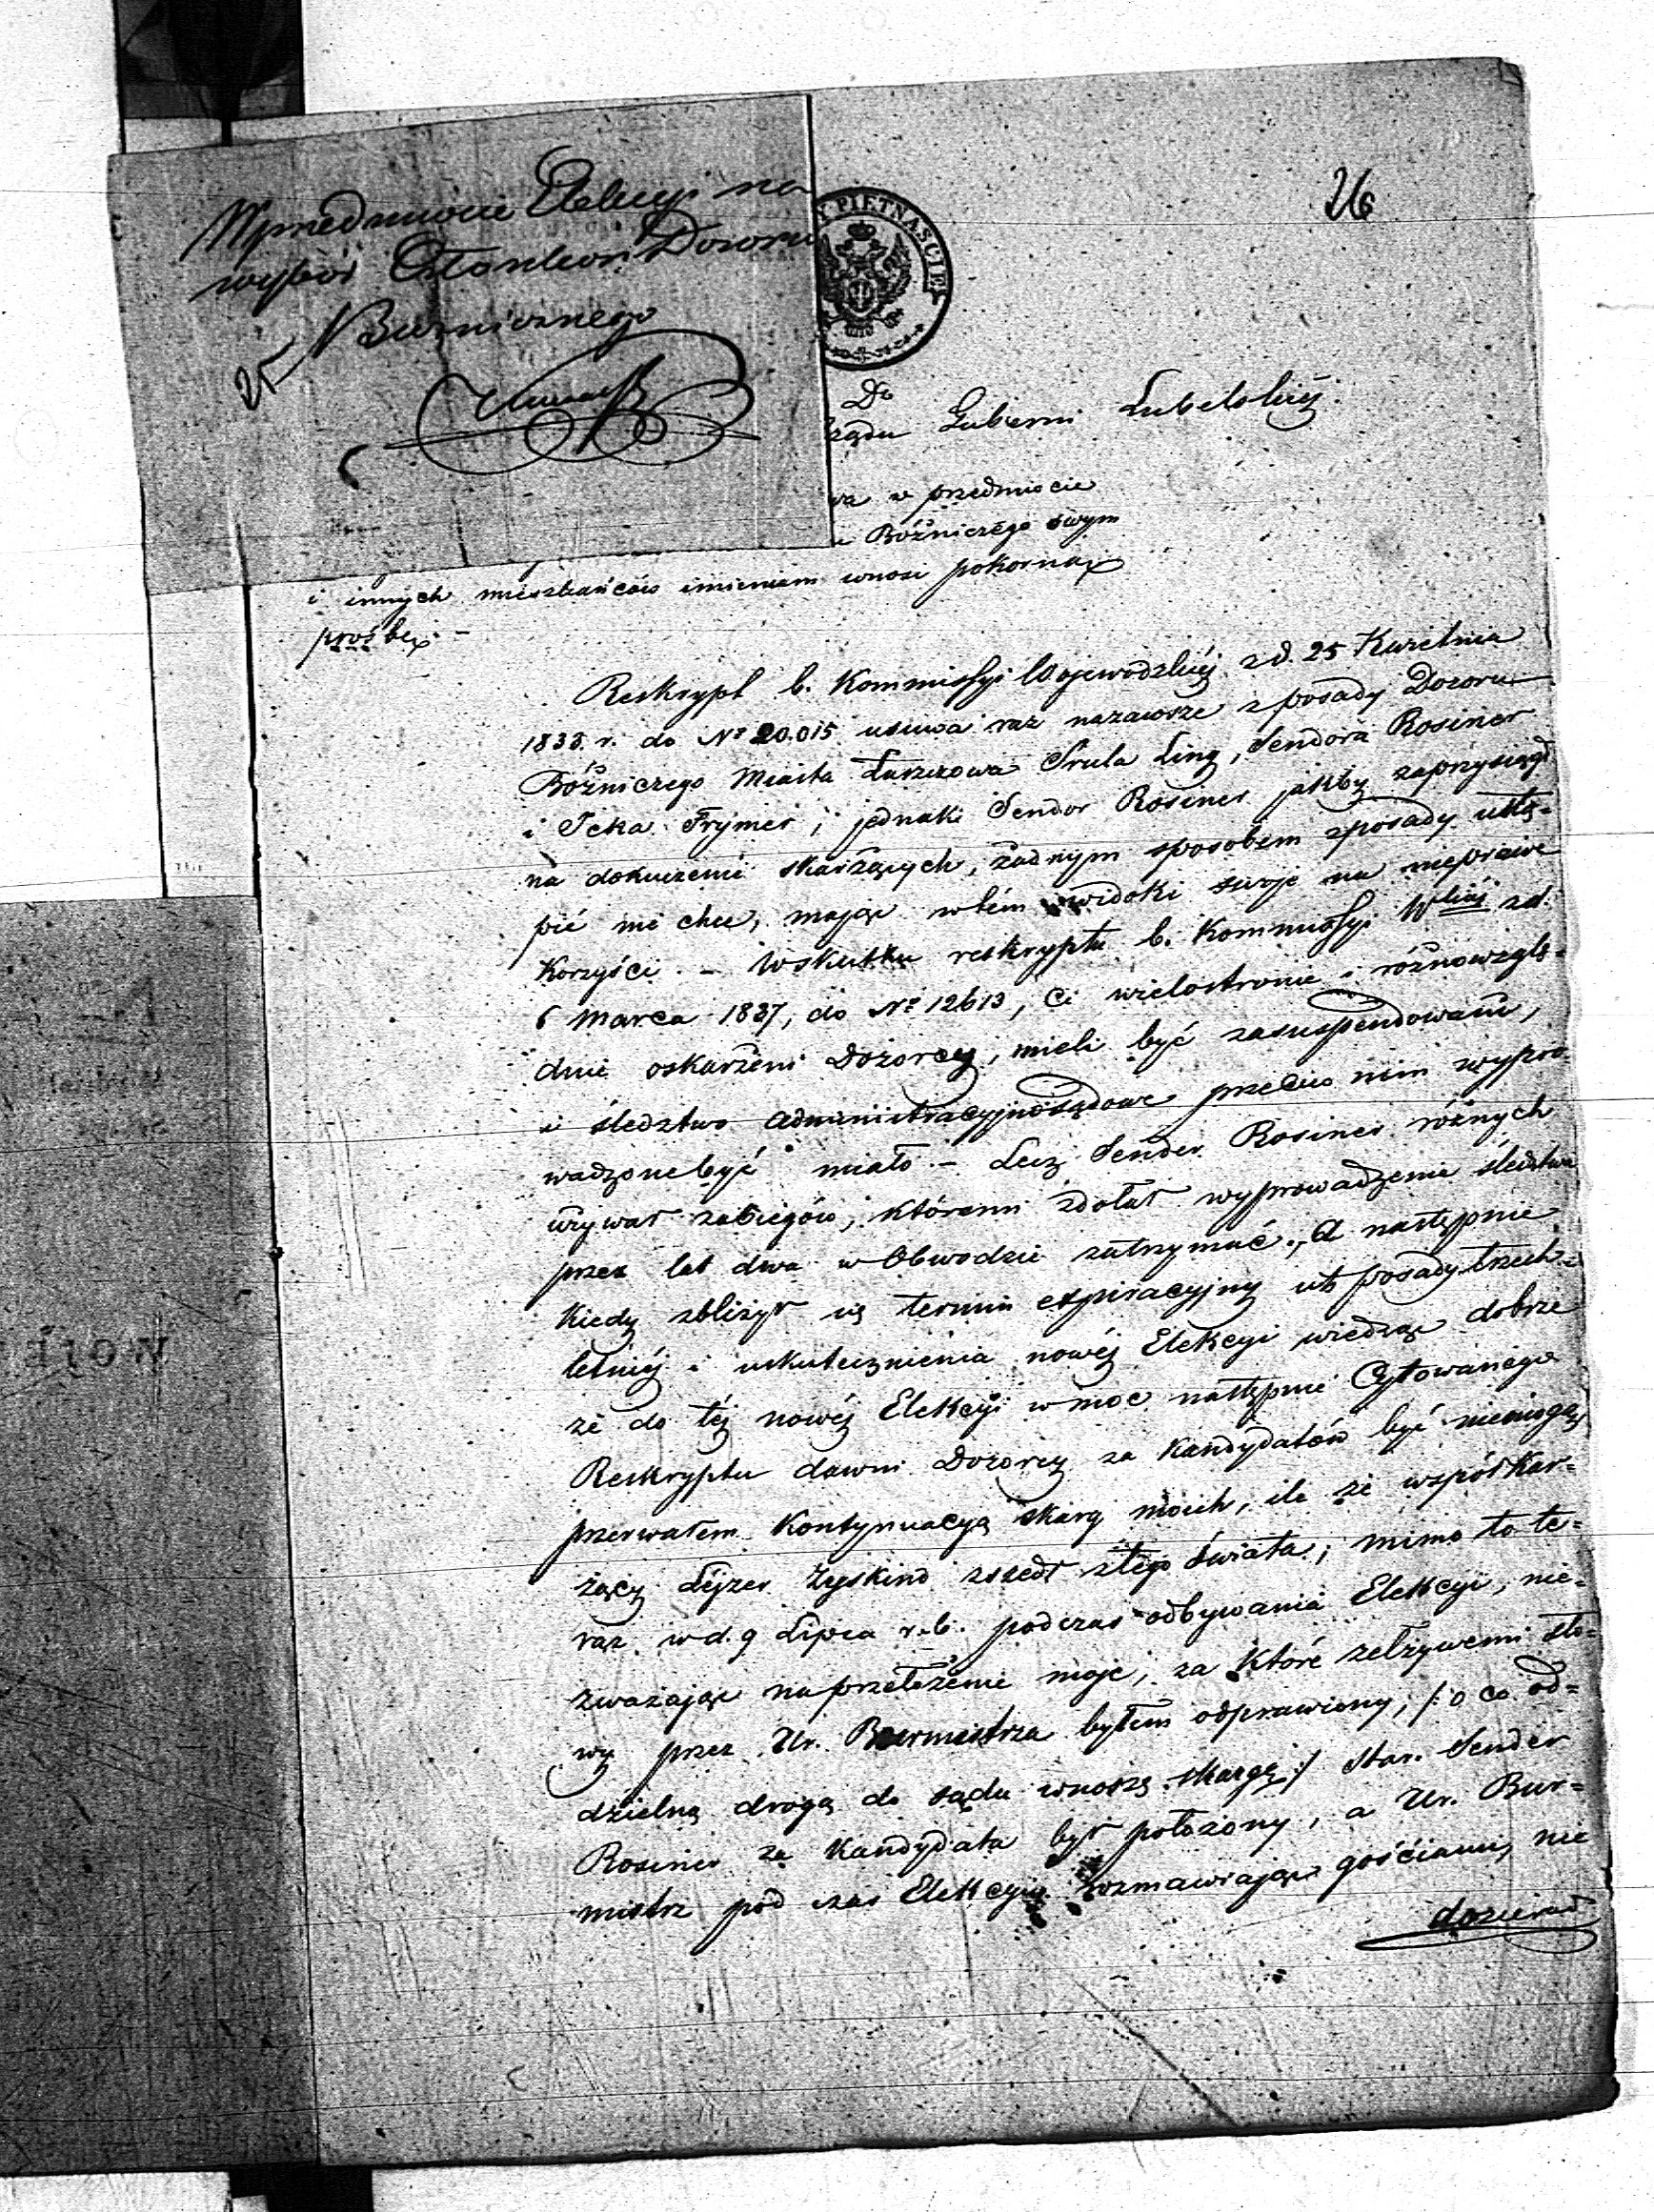 W przedmiocie Elekcyi na
wybór Członków Dozoru
Bużnicznego
25
26
Y PIĘTNAŚCIE
Do
Rządu Gubernii Lubelskiéj.
wa w przedmiocie
Bóżniczego swym
i innych mieszkańców imieniem wnosi pokorną
prośbę. –
Reskrypt b. Kommissyi Wojewodzkiéj z d. 25 Kwietnia
1838. r. do No 20.015 usuwa raz nazawsze z posady Dozoru
Bóżniczego Miasta Łaszczowa Srula Ling, Sendora Rosiner
i Icka Frymer, jednak Sendor Rosiner jakby zaprzysiągł
na dokuczenie skarżących, żadnym sposobem z posady ustą=
pić nie chce, mając w tém widoki swoje na nieprawe
Korzyści. – W skutku reskryptu b. Kommissyi Wkiéj z d.
6 Marca 1837, do No 12613, Ci wielostronnie i różnowzglę=
dnie oskarżeni Dozorcy, mieli być zasuspendowani,
i śledztwo administracyjnosądowe przeciw nim wypro=
wadzone być miało. – Lecz Sender Rosiner różnych
używał zabiegów, któremi zdołał wyprowadzenie śledztwa
przez lat dwa w Obwodzie zatrzymać., A następnie
Kiedy zbliżył się termin expiracyjny ich posady trzech=
letniéj i uskutecznienia nowéj Elekcyi wiedząc dobrze
że do téj nowéj Elekcyi w moc następnie Cytowanego
Reskryptu dawni Dozorcy za Kandydatów być niemogą,
przerwałem Kontynuacyą skarg moich, ile że wspołskar=
żący Lejzer Zyskind zszedł z tego świata; mimo to te=
raz w d. 9 Lipca r. b. podczas odbywania Elekcyi, nie=
zważając na przełożenie moje, za Które zelżywemi sło=
wy przez Ur. Burmistrza byłem odprawiony, /: o co od=
dzielną drogą do sądu wnoszę skargę :/ Star. Sender
Rosiner za Kandydata był położony, a Ur. Bur=
mistrz pod czas Elekcyi rozmawiając gościami, nie